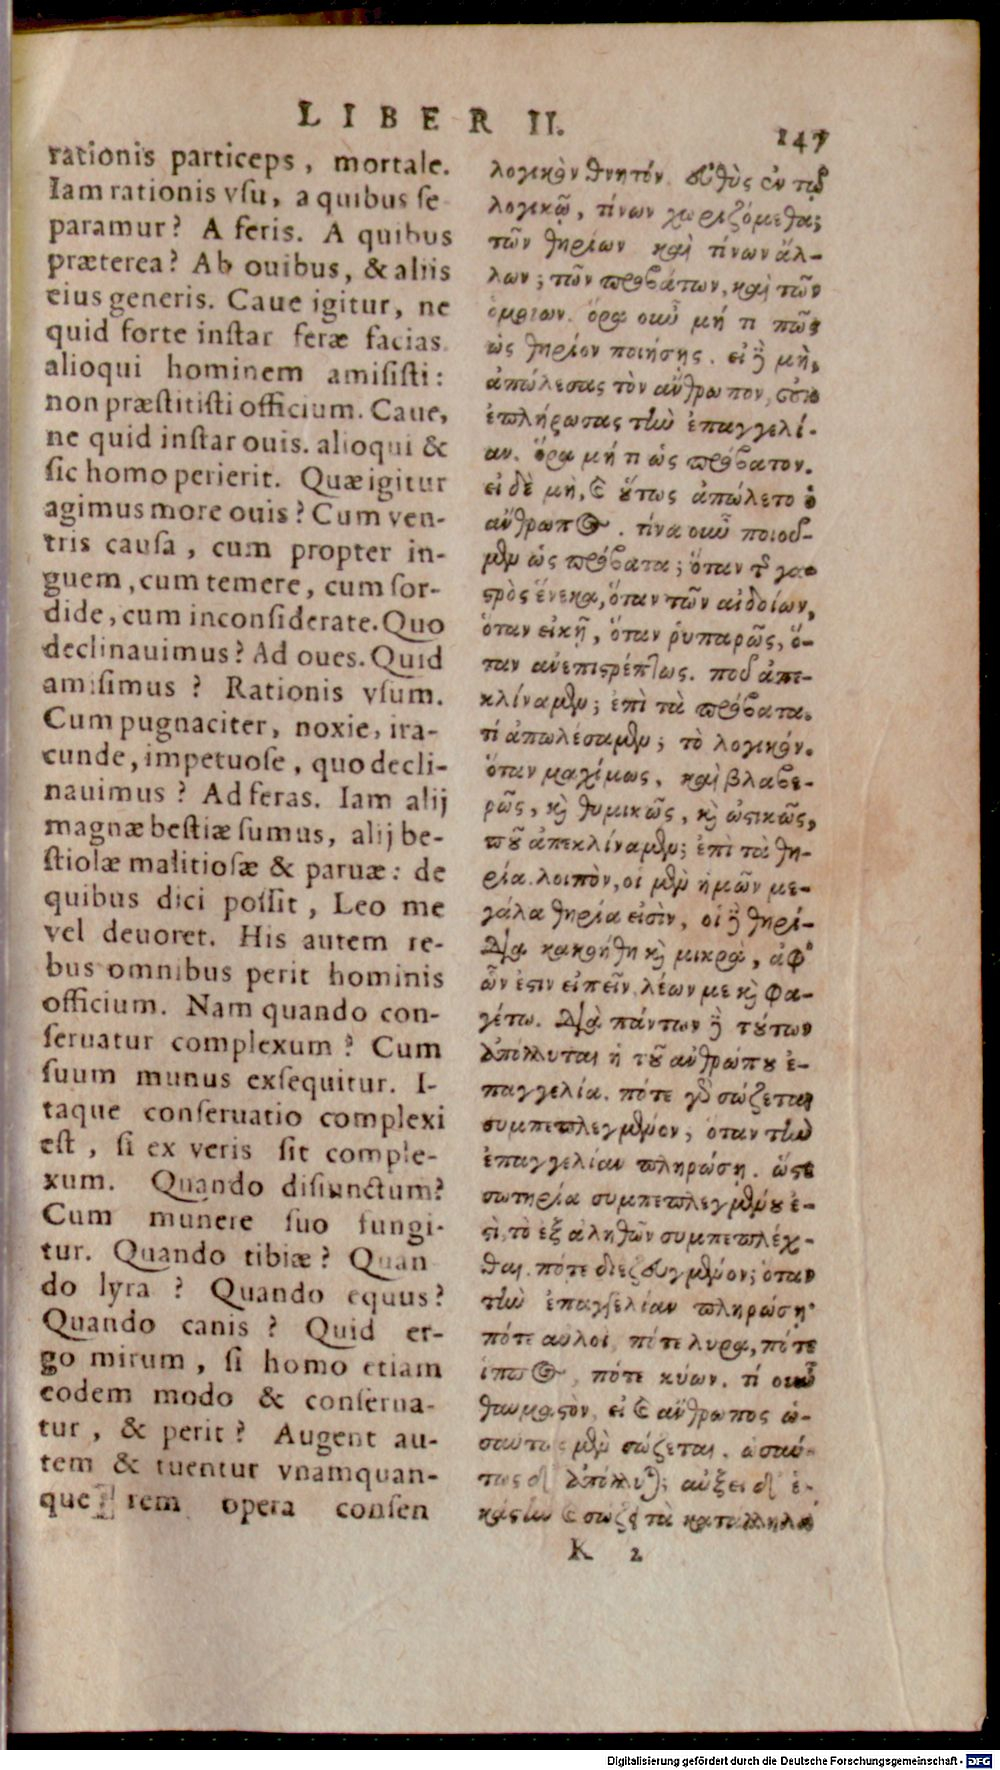 LIBER II.
147
rationis particeps, mortale.
Iam rationis vsu, a quibus se
paramur? A feris. A quibus
præterea? Ab ouibus, & aliis
eius generis. Caue igitur, ne
quid forte instar feræ facias.
alioqui hominem amisisti:
non præstitisti officium. Caue,
ne quid instar ouis. alioqui &
sic homo perierit. Quæ igitur
agimus more ouis? Cum ven-
tris causa, cum propter in-
guem, cum temere, cum sor-
dide, cum inconsiderate. Quo
declinauimus? Ad oues. Quid
amisimus? Rationis vsum.
Cum pugnaciter, noxie, ira-
cunde, impetuose, quo decli-
nauimus? Ad feras. Iam alij
magnæ bestiæ sumus, alij be-
stiolæ malitiosæ & paruæ: de
quibus dici possit, Leo me
vel deuoret. His autem re-
bus omnibus perit hominis
officium. Nam quando con-
seruatur complexum? Cum
suum munus exsequitur. I-
taque conseruatio complexi
est, si ex veris sit comple-
xum. Quando disiunctum?
Cum munere suo fungi-
tur. Quando tibiæ? Quan
do lyra? Quando equus?
Quando canis? Quid er-
go mirum, si homo etiam
eodem modo & conserua-
tur, & perit? Augent au-
tem & tuentur vnamquan-
que rem opera consen
λογικὸν θνητόν. εὐθὺς ἐν τῷ
λογικῷ, τίνων χωριζόμεθα;
τῶν θηρίων. καὶ τίνων ἄλ-
λων; τῶν προβάτων, καὶ τῶν
ὁμοίων. ὅρα οὖν μή τι πῶς
ὡς θηρίον ποιήσῃς. εἰ δὲ μὴ,
ἀπώλεσας τὸν ἄνθρωπον, οὐκ
ἐπλήρωσας τὴν ἐπαγγελί-
αν. ὅρα μή τι ὡς πρόβατον.
εἰ δὲ μὴ, καὶ οὕτως ἀπώλετο ὁ
ἄνθρωπος. τίνα οὖν ποιοῦ-
μεν ὡς πρόβατα; ὅταν τῆς γα-
στρὸς ἕνεκα, ὅταν τῶν αἰδοίων,
ὅταν εἰκῆ, ὅταν ῥυπαρῶς, ὅ-
ταν ἀνεπιστρέπτως. ποῦ ἀπε-
κλίναμεν; ἐπὶ τὰ πρόβατα.
τί ἀπωλέσαμεν; τὸ λογικόν.
ὅταν μαχίμως, καὶ βλαβε-
ρῶς, καὶ θυμικῶς, καὶ ὠστικῶς,
ποῦ ἀπεκλίναμεν; ἐπὶ τὰ θη-
ρία. λοιπὸν, οἱ μὲν ἡμῶν με-
γάλα θηρία εἰσὶν, οἱ δὲ θηρί-
δια κακοήθη καὶ μικρὰ, ἀφ'
ὧν ἔστιν εἰπεῖν, λέων με καὶ φα-
γέτω. Διὰ πάντων δὲ τούτων
ἀπόλλυται ἡ τοῦ ἀνθρώπου ἐ-
παγγελία. πότε γὰρ σώζεται
συμπεπλεγμένον; ὅταν τὴν
ἐπαγγελίαν πληρώσῃ. ὥστε
σωτηρία συμπεπλεγμένου ἐ-
στὶ, τὸ ἐξ ἀληθῶν συμπεπλέχ-
θαι. πότε διεζευγμένον; ὅταν
τὴν ἐπαγγελίαν πληρώσῃ·
πότε αὐλοὶ, πότε λύρα, πότε
ἵππος, πότε κύων. τί οὖν
θαυμαστὸν, εἰ καὶ ἄνθρωπος ὡ-
σαύτως μὲν σώζεται. ὡσαύ-
τως δ' ἀπόλλυται; αὔξει δ' ἑ-
κάστην καὶ σώζει τὰ κατάλληλα
K 2
Digitalisierung gefördert durch die Deutsche Forschungsgemeinschaft - DFG